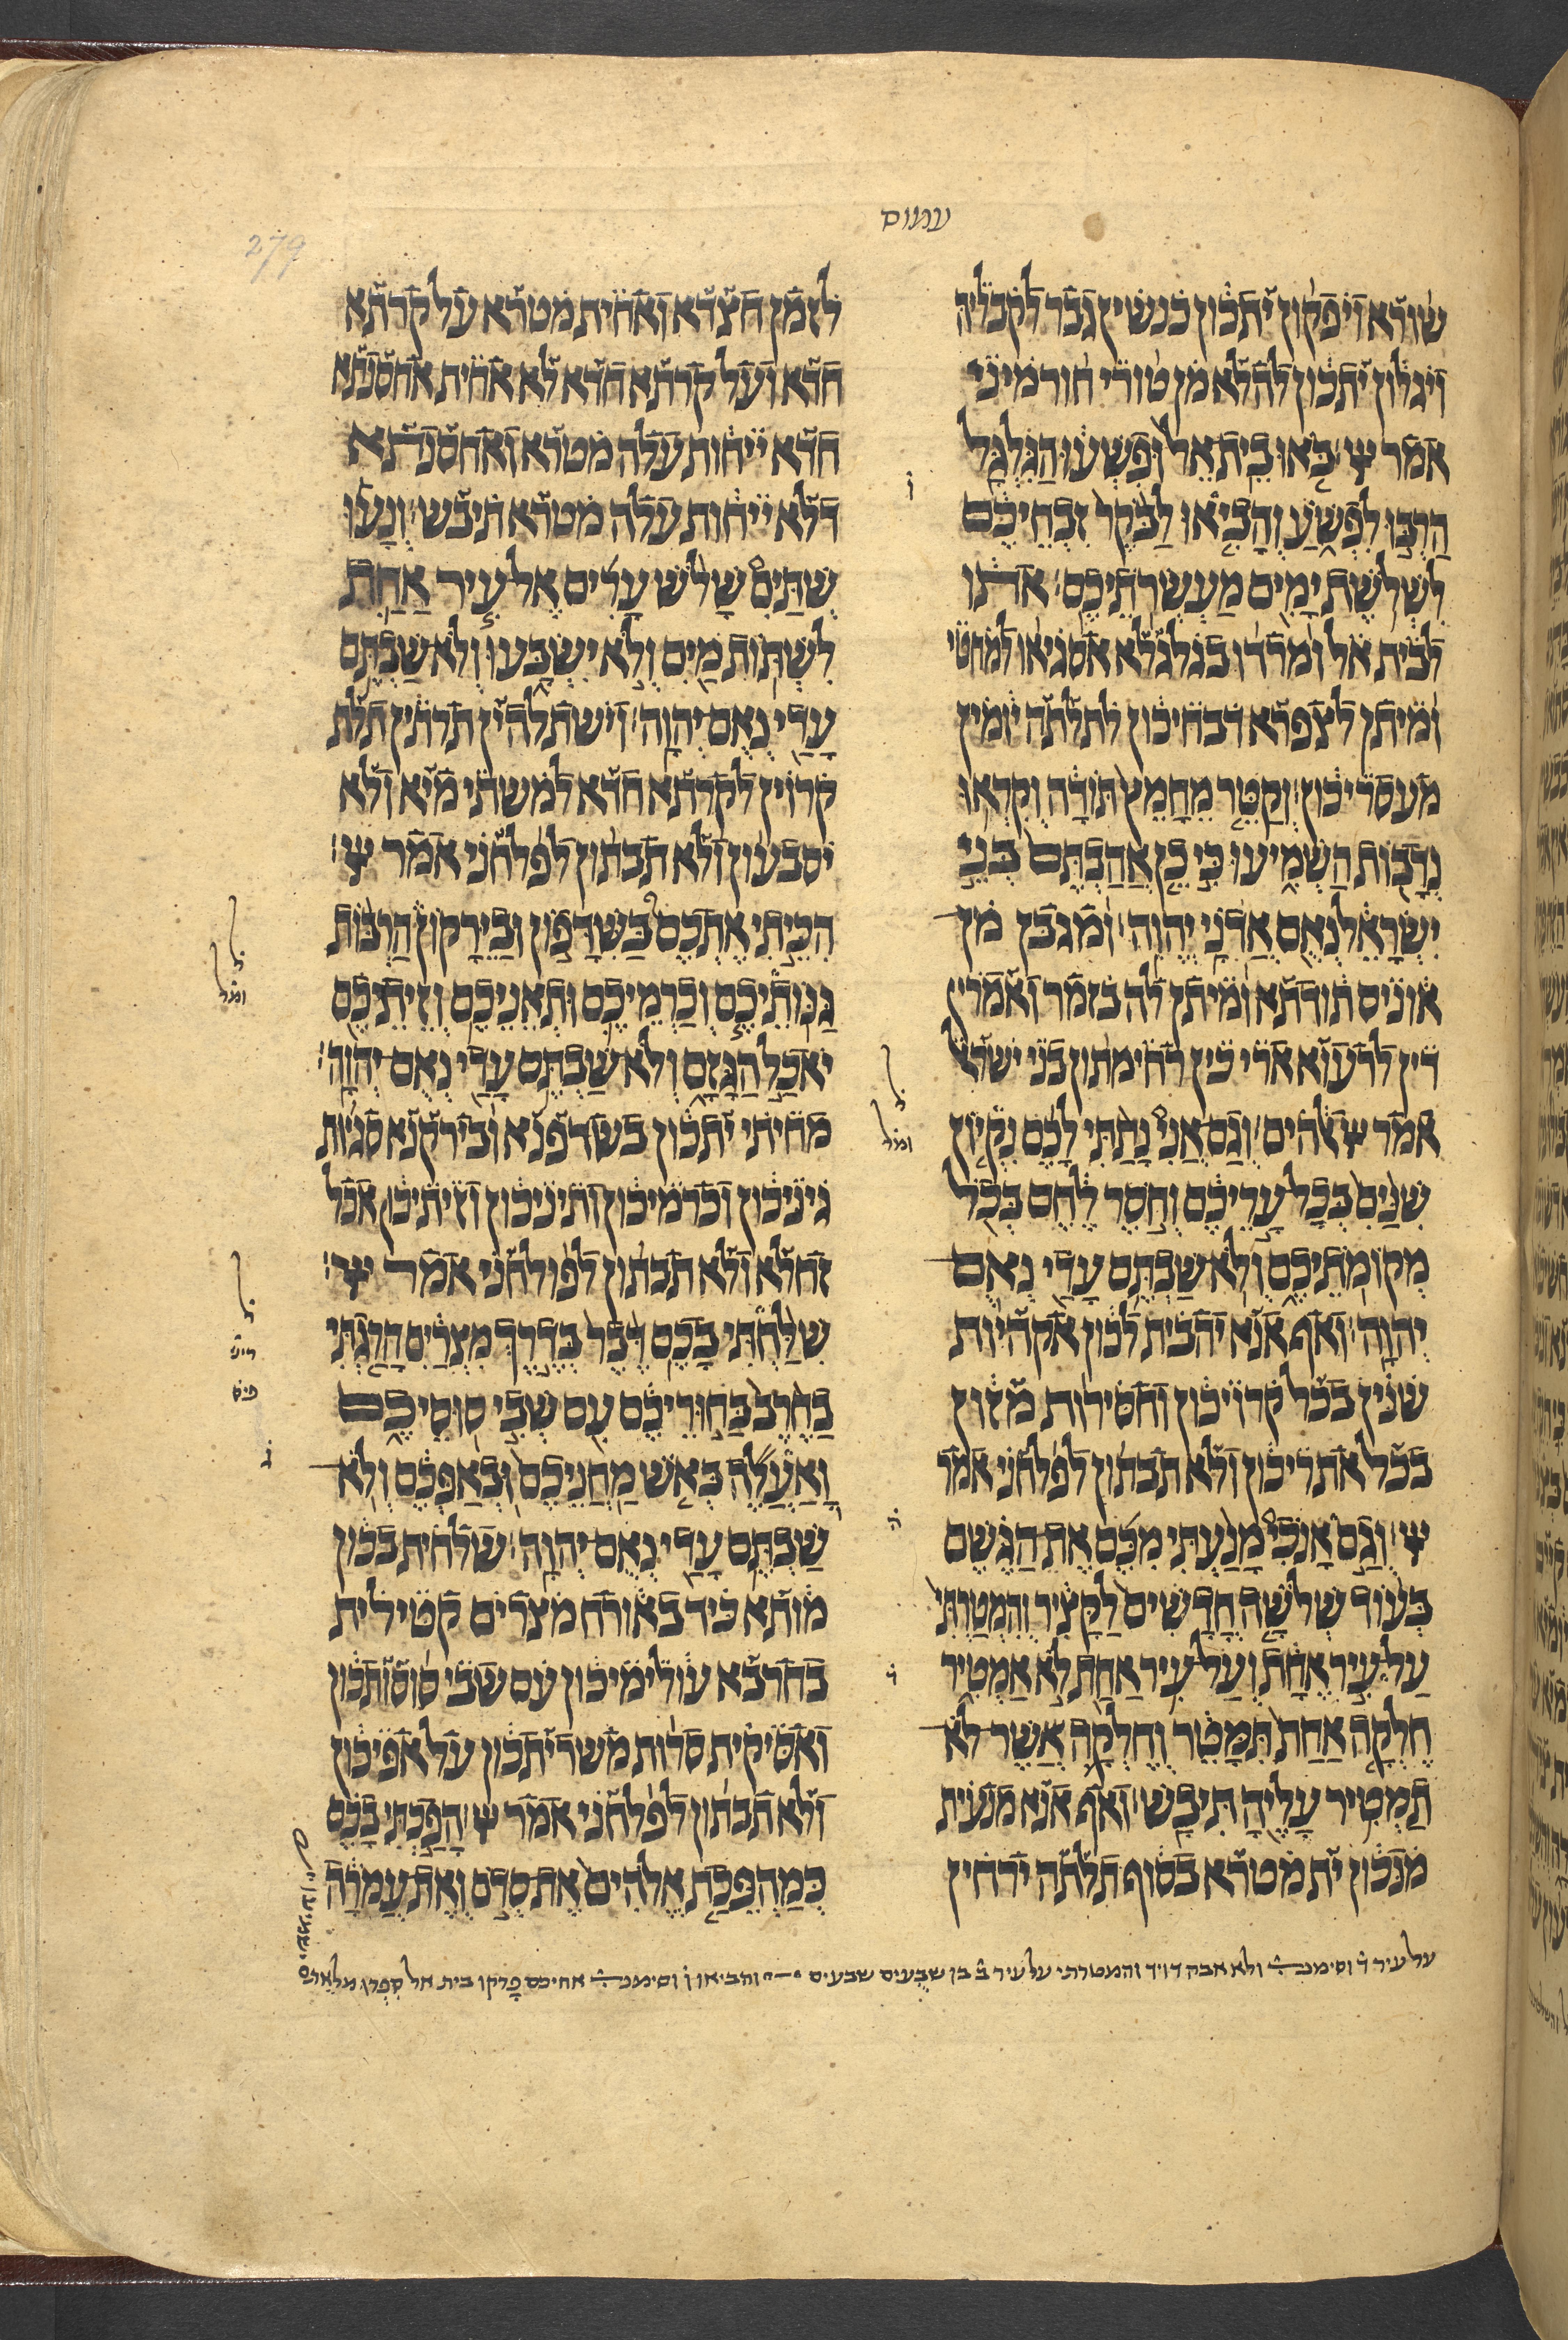 עמוס
279
שורא ויפקון יתכון כנשין גבר לקבליה
ויגלון יתכון להלא מן טורי חורמיני
אמר ייי׃ בֹּאוּ בֵית־אֵל וּפִשְׁעוּ הַגִּלְגָּל
הַרְבּוּ לִפְשֹׁעַ וְהָבִיאוּ לַבֹּקֶר זִבְחֵיכֶם
לִשְׁלֹשֶׁת יָמִים מַעְשְׂרֹתֵיכֶם׃ אתו
לבית אל ומרדו בגלגלא אסגיאו למחטי
ומיתן לצפרא דבחיכון לתלתה יומין
מעסריכון׃ וְקַטֵּר מֵחָמֵץ תּוֹדָה וְקִרְאוּ
נְדָבוֹת הַשְׁמִיעוּ כִּי כֵן אֲהַבְתֶּם בְּנֵי
יִשְׂרָאֵל נְאֻם אֲדֹנָי יֱהוִה׃ ומגבן מן
אוניס תודתא ומיתן לה בזמר ואמרין
דין לרעוא ארי כין רחימתון בני ישראל
אמר ייי אלהים׃ וְגַם אֲנִי נָתַתִּי לָכֶם נִקְיוֹן
שִׁנַּיִם בְּכָל עָרֵיכֶם וְחֹסֶר לֶחֶם בְּכֹל
מְקוֹמֹתֵיכֶם וְלֹא שַׁבְתֶּם עָדַי נְאֻם
יְהוָה׃ ואף אנא יהבית לכון אקהיות
שנין בכל קרויכון וחסירות מזון
בכל אתריכון ולא תבתון לפלחני אמר
ייי׃ וְגַם אָנֹכִי מָנַעְתִּי מִכֶּם אֶת הַגֶּשֶׁם
בְּעוֹד שְׁלֹשָׁה חֳדָשִׁים לַקָּצִיר וְהִמְטַרְתִּי
עַל עִיר אֶחָת וְעַל עִיר אַחַת לֹא אַמְטִיר
חֶלְקָה אַחַת תִּמָּטֵר וְחֶלְקָה אֲשֶׁר לֹא
תַמְטִיר עָלֶיהָ תִּיבָשׁ׃ ואף אנא מנעית
מנכון ית מטרא בסוף תלתה ירחין
לזמן חצדא ואחית מטרא על קרתא
חדא ועל קרתא חדא לא אחית אחסנתא
חדא ייחות עלה מטרא ואחסנתא
דלא ייחות עלה מטרא תיבש׃ וְנָעוּ
שְׁתַּיִם שָׁלֹשׁ עָרִים אֶל עִיר אַחַת
לִשְׁתּוֹת מַיִם וְלֹא יִשְׂבָּעוּ וְלֹא שַׁבְתֶּם
עָדַי נְאֻם יְהוָה׃ וישתלהין תרתין תלת
קרוין לקרתא חדא למשתי מיא ולא
יסבעון ולא תבתון לפלחני אמר ייי׃
הִכֵּיתִי אֶתְכֶם בַּשִּׁדָּפוֹן וּבַיֵּרָקוֹן הַרְבּוֹת
גַּנּוֹתֵיכֶם וְכַרְמֵיכֶם וּתְאֵנֵיכֶם וְזֵיתֵיכֶם
יֹאכַל הַגָּזָם וְלֹא שַׁבְתֶּם עָדַי נְאֻם יְהוָה׃
מחיתי יתכון בשדפנא ובירקנא סגיות
גיניכון וכרמיכון ותיניכון וזיתיכון אכל
זחלא ולא תבתון לפולחני אמר ייי׃
שִׁלַּחְתִּי בָכֶם דֶּבֶר בְּדֶרֶךְ מִצְרַיִם הָרַגְתִּי
בַחֶרֶב בַּחוּרֵיכֶם עִם שְׁבִי סוּסֵיכֶם
וָאַעֲלֶה בְּאֹשׁ מַחֲנֵיכֶם וּבְאַפְּכֶם וְלֹא
שַׁבְתֶּם עָדַי נְאֻם יְהוָה׃ שלחית בכון
מותא כיד באורח מצרים קטילית
בחרבא עולימיכון עם שבי סוסותכון
ואסיקית סרות משריתכון על אפיכון
ולא תבתון לפלחני אמר ייי׃ הָפַכְתִּי בָכֶם
כְּמַהְפֵּכַת אֱלֹהִים אֶת סְדֹם וְאֶת עֲמֹרָה
על עיר ד וסימנ ולא אבה דויד והמטרתי על עיר ב בן שבעים שבעים והביאו ו וסימנ אחיכם פרקו בית אל ספרן מלאים